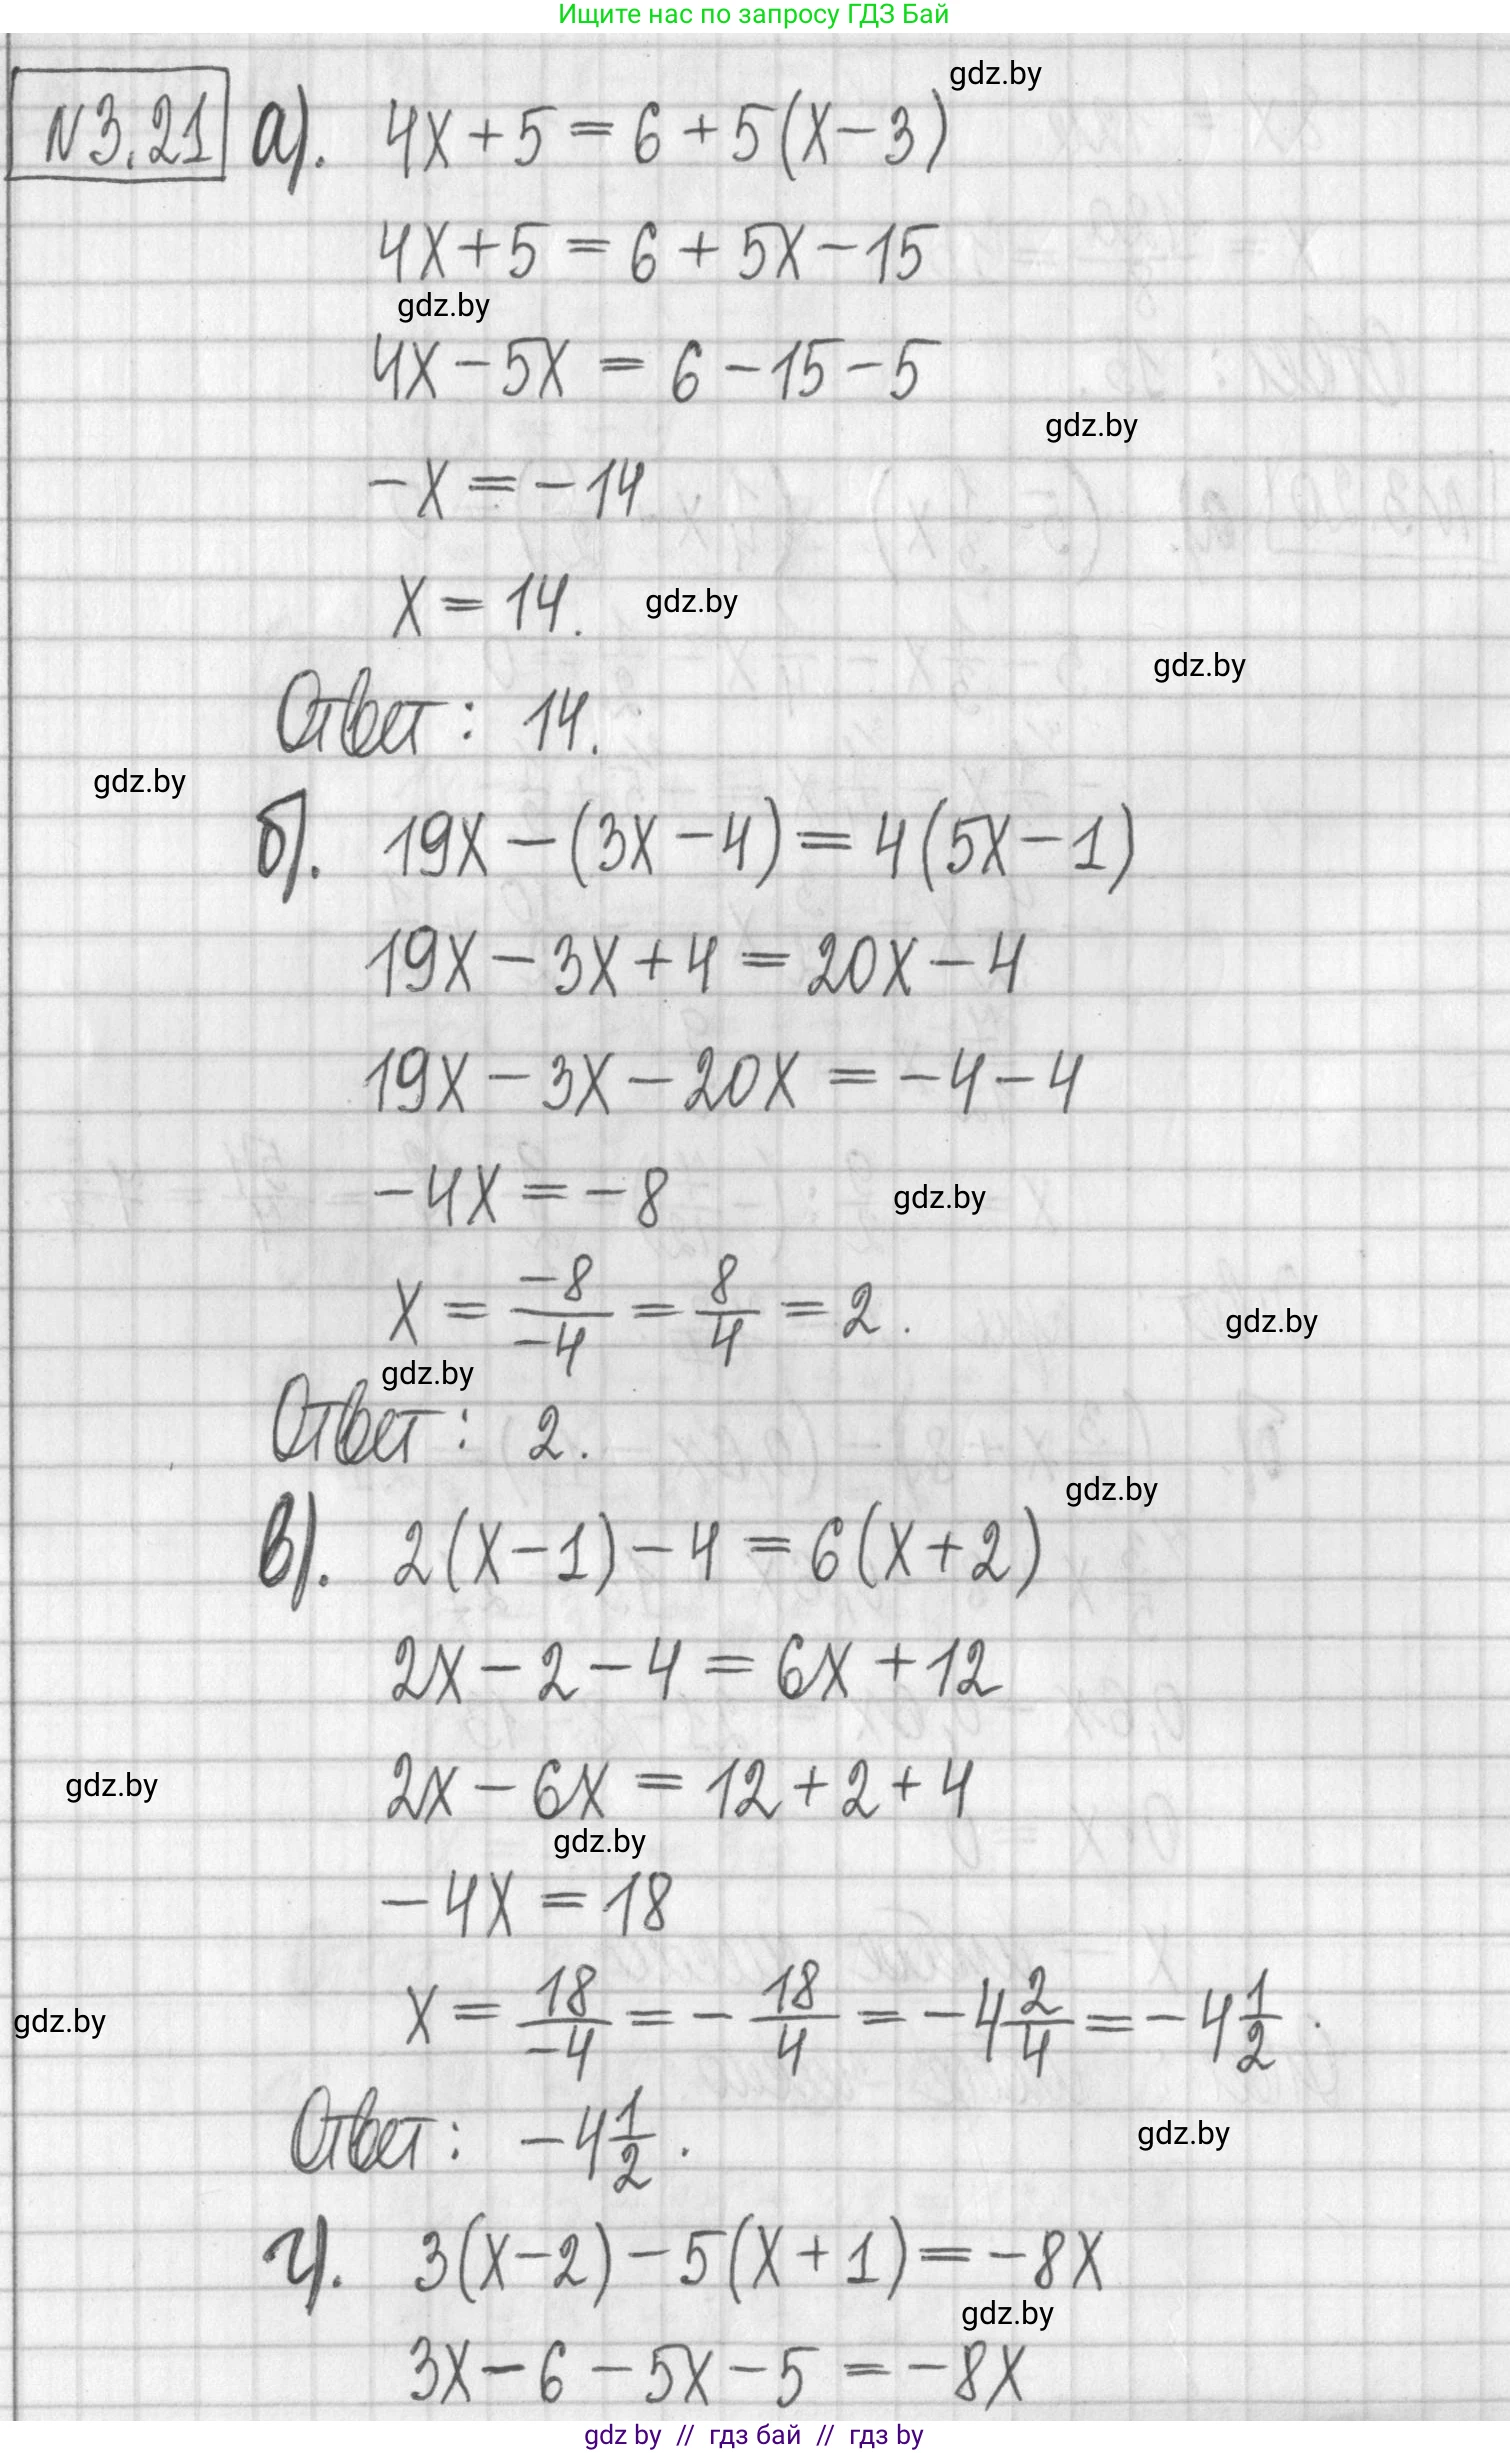 Ищите нас по запросу ГДЗ Бай
gdz.by
№3.21 а). 4x+5=6+5(x-3)
4x+5=6+5x-15
gdz.by
4x-5x=6-15-5
gdz.by
-x=-14
x=14. gdz.by
gdz.by
Ответ: 14.
gdz.by
б). 19x-(3x-4)=4(5x-1)
19x-3x+4=20x-4
19x-3x-20x=-4-4
-4x=-8 gdz.by
x=-8/-4=8/4=2. gdz.by
gdz.by
Ответ: 2.
gdz.by
в). 2(x-1)-4=6(x+2)
2x-2-4=6x+12
gdz.by 2x-6x=12+2+4
gdz.by
-4x=18
gdz.by x=18/-4=-18/4=-4 2/4=-4 1/2.
Ответ: -4 1/2. gdz.by
г). 3(x-2)-5(x+1)=-8x
gdz.by
3x-6-5x-5=-8x
gdz by // гдз бай // гдз by